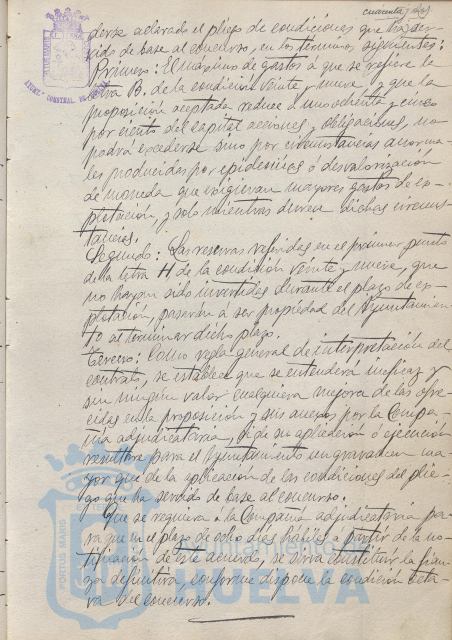 cuarenta y dos
derse aclarado el pliego de condiciones que ha ser-
vido de base al concurso, en los términos siguientes:
Primero: El maximo de gastos á que se refiere la
letra B. de la condición veinte y nueve, y que la
proposición aceptada reduce á un ochenta y cinco
por ciento del capital acciones y obligaciones, no
podrá excederse sino por circunstancias anorma-
les producidas por epidemias ó desvalorizacion
de moneda que exigieran mayores gastos de ex-
plotacion, y solo mientras duren dichas circuns-
tancias.
Segundo: Las reservas referidas en el primer punto
de la letra H de la condición veinte y nueve, que
no hayan sido invertidas durante el plazo de ex-
plotación, pasarán á ser propiedad del Ayuntamien-
to al terminar dicho plazo.
Tercero: Como regla general de interpretación del
contrato, se establece que se entenderá ineficaz y
sin ningún valor cualquiera mejora de las ofre-
cidas en la proposición y sus anexos, por la Compa-
ñia adjudicataria, si de su aplicación ó ejecución
resultara para el Ayuntamiento un gravamen ma-
yor que de la aplicación de las condiciones del plie-
go que ha servido de base al concurso.
Que se requiera á la Compañia adjudicataria pa-
ra que en el plazo de ocho dias hábiles á partir de la no-
tificación de este acuerdo, se sirva constituir la fian-
za definitiva, conforme dispone la condición octa-
va del concurso.
PORTUS MARIS
Ayuntamiento de
HUELVA